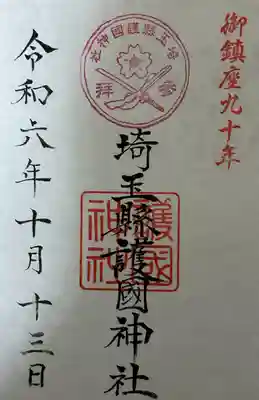 御鎮座九十年
埼玉縣護國神社
參拜
埼玉縣護國神社
護國
神社
令和六年十月十三日